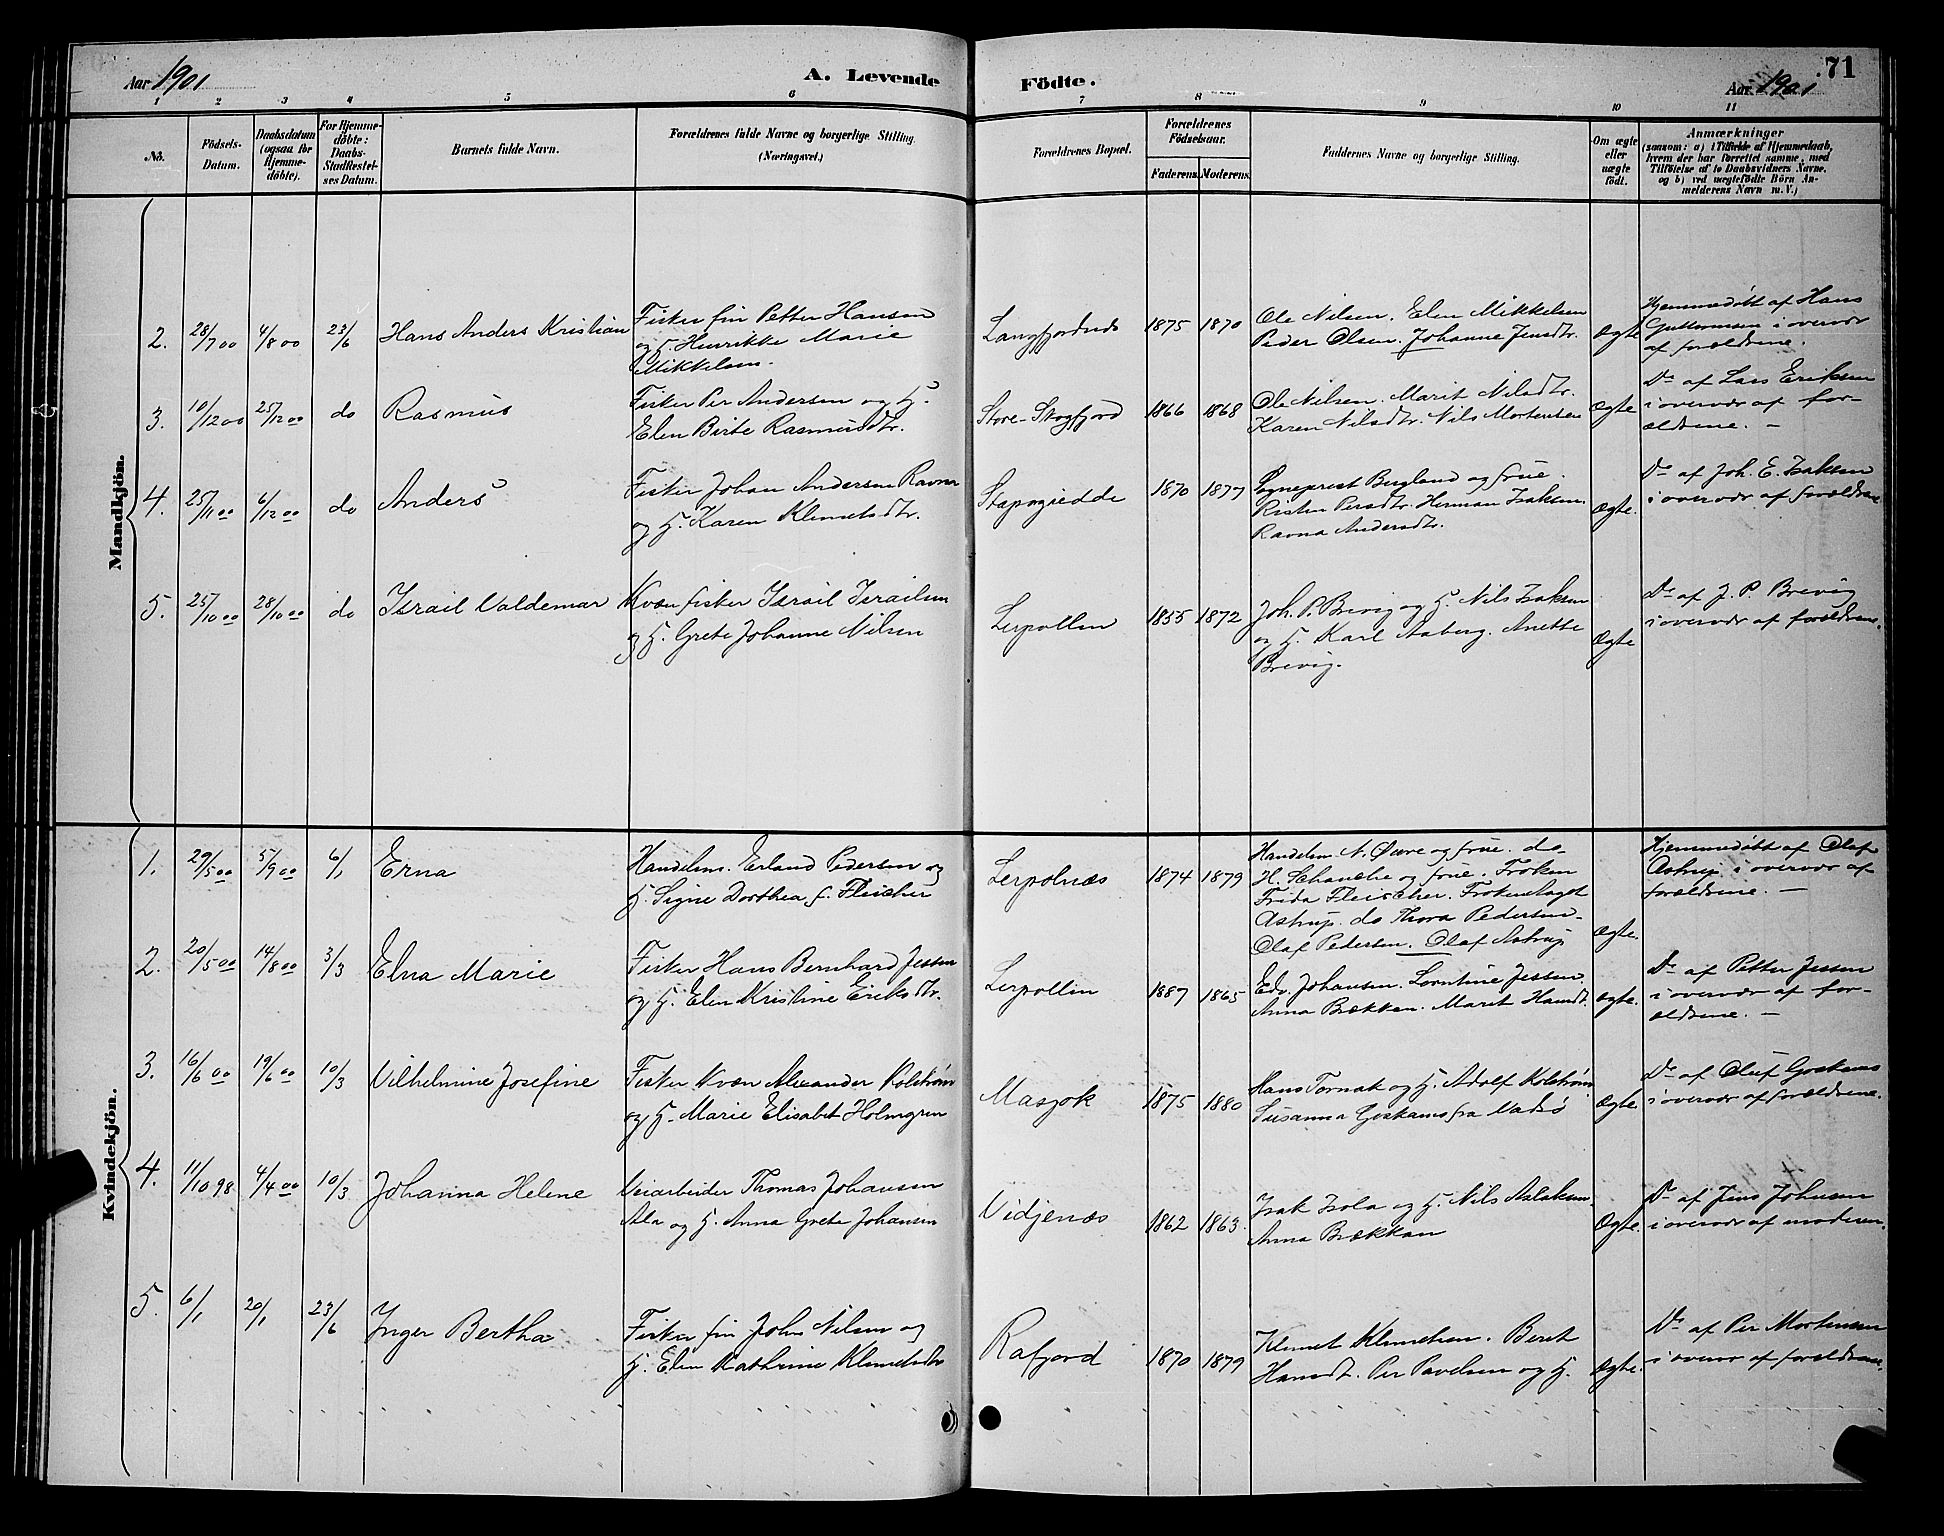 Aar 1901
A. Levende
Födte.
Aar 1901
71
1 2 3 4 5 6 7 8 9 10 11
No.
Födsels-
Datum.
Daabsdatum
(ogsaa for
Hjemme-
döbte).
For Hjemme-
döbte:
Daabs-
Stadfæstel-
ses Datum.
Barnets fulde Navn.
Forældrenes fulde Navne og borgerlige Stilling.
(Næringsvei.)
Forældrenes Bopæl.
Forældrenes
Födselsaar.
Faderens.
Moderens.
Faddernes Navne og borgerlige Stilling.
Om ægte
eller
uægte
født.
Anmærkninger
(saasom: a) i Tilfælde af Hjemmedaab,
hvem der har forrettet samme, med
Tilföielse af to Daabsvidners Navne,
og b) ved uægtefödte Börn An-
melderens Navn m. V.)
Mandkjön.
2. 28/7 00 4/8 00 23/6 Hans Anders Kristian
Fisker fin Petter Hansen
og H. Henrikke Marie
Mikkelsen.
Langfjordnæs 1875 1870
Ole Nilsen. Elen Mikkelsen
Peder Olsen. Johanne Jensdtr.
Ægte
Hjemmedøbt af Hans
Guttormsen i overvær
af forældrene.
3. 10/12 00 25/12 00 do Rasmus
Fisker Per Andersen og H.
Elen Birte Rasmusdtr.
Store-Skogfjord 1866 1868
Ole Nilsen. Marit Nilsdtr.
Karen Nilsdtr. Nils Mortensen
Ægte
Do af Lars Eriksen
i overvær af for-
ældrene. —
4. 25/11 00 6/12 00 do Anders
Fisker Johan Andersen Ravna
og H. Karen Klemetsdtr.
Stapogiedde 1870 1877
Sogneprest Bugland og frue.
Risten Persdtr. Herman Isaksen
Ravna Andersdtr.
Ægte.
Do af Joh. E. Isaksen
i overvær af forældrene
5. 25/10 00 28/10 00 do Israil Valdemar
Kvæn fisker Israil Israilsen
og H. Grete Johanne Nilsen
Lerpollen 1855 1872
Joh. P. Brevig og H. Nils Isaksen
og H. Karl Aaberg. Anette
Brevig.
Ægte
Do af J. P. Brevig
i overvær af forældrene.
Kvindekjön.
1. 29/5 00 5/9 00 6/1 Erna
Handelsm. Erland Pedersen og
H. Signe Dorthea f. Fleischer
Lerpolnæs 1874 1879
Handelsm N. Øwre og frue. do
H. Schanche og frue. Frøken
Frida Fleischer. Frøken Aagot
Astrup. do Thora Pedersen.
Olaf Pedersen. Olaf Astrup
Ægte.
Hjemmedøbt af Olaf
Astrup i overvær af
forældrene. —
2. 20/5 00 14/8 00 3/3 Elna Marie
Fisker Hans Bernhard Jessen
og H. Elen Kristine Eriksdtr.
Lerpollen 1887 1865
Edv. Johansen. Lorntine Jessen
Anna Brækken. Marit Hansdt.
Ægte.
Do af Petter Jessen
i overvær af for-
ældrene. —
3. 16/6 00 19/6 00 10/3 Vilhelmine Josefine
Fisker Kvæn Alexander Kolstrøm
og H. Marie Elisabet Holmgren
Masjok 1875 1880
Hans Tornak og H. Adolf Kolstrøm
Susanna Goskams fra Vadsø
Ægte.
Do af Oluf Goskams
i overvær af forældrene.
4. 11/10 98 4/4 00 10/3 Johanna Helene
Veiarbeider Thomas Johansen
Ala og H. Anna Grete Johansen
Vidjenæs 1862 1863.
Isak Isola og H. Nils Aslaksen
Anna Brækkan
Ægte.
Do af Jens Johnsen
i overvær af moderen.
5. 6/1 20/1 23/6 Inger Bertha
Fisker fin John Nilsen og
H. Elen Kathrine Klemetsdtr
Rafjord 1870 1879
Klemet Klemetsen. Beret
Hansdt. Per Pavelsen og H.
Ægte.
Do af Per Mortensen
i overvær af forældrene.